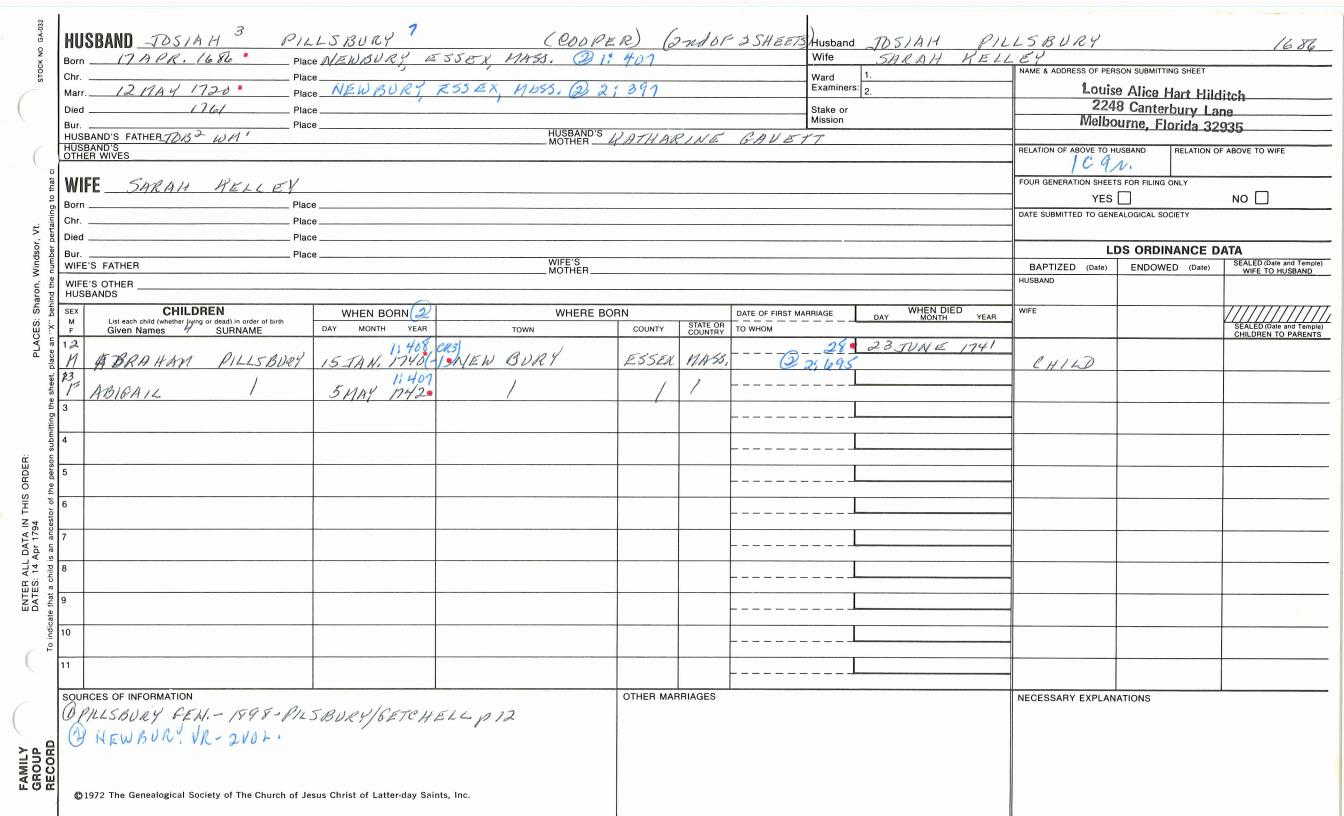 STOCK NO. GA-033
HUSBAND JOSIAH 3 PILLSBURY 7 (COOPER) (2nd OF 2 SHEETS)
Born 17 APR. 1686 Place NEWBURY, ESSEX, MASS. ② 1:407
Chr. Place
Marr. 12 MAY 1720 Place NEWBURY, ESSEX, MASS. ② 2:397
Died 1761 Place
Bur. Place
HUSBAND'S FATHER JOB² WM¹ HUSBAND'S MOTHER KATHARINE GAVETT
HUSBAND'S OTHER WIVES
Husband JOSIAH PILLSBURY 1686
Wife SARAH KELLEY
Ward Examiners: 1.
2.
Stake or Mission
NAME & ADDRESS OF PERSON SUBMITTING SHEET
Louise Alice Hart Hilditch
2248 Canterbury Lane
Melbourne, Florida 32935
RELATION OF ABOVE TO HUSBAND RELATION OF ABOVE TO WIFE
FOUR GENERATION SHEETS FOR FILING ONLY
YES NO
DATE SUBMITTED TO GENEALOGICAL SOCIETY
WIFE SARAH KELLEY
Born Place
Chr. Place
Died Place
Bur. Place
WIFE'S FATHER WIFE'S MOTHER
WIFE'S OTHER HUSBANDS
LDS ORDINANCE DATA
BAPTIZED (Date) ENDOWED (Date) SEALED (Date and Temple) WIFE TO HUSBAND
HUSBAND
WIFE
SEALED (Date and Temple) CHILDREN TO PARENTS
SEX M F CHILDREN WHEN BORN ② WHERE BORN DATE OF FIRST MARRIAGE WHEN DIED
List each child (whether living or dead) in order of birth
Given Names 4 SURNAME DAY MONTH YEAR TOWN COUNTY STATE OR COUNTRY TO WHOM DAY MONTH YEAR
1:408 CR3 28 23 JUNE 1741
12 M ABRAHAM PILLSBURY 15 JAN. 1740 NEW BURY ESSEX MASS. ② 2:695 CHILD
1:407
13 F ABIGAIL 5 MAY 1742
3
4
5
6
7
8
9
10
11
SOURCES OF INFORMATION OTHER MARRIAGES NECESSARY EXPLANATIONS
① PILLSBURY GEN.- 1898-PILSBURY/GETCHELL p 12
② NEWBURY VR- 2VOL.
©1972 The Genealogical Society of The Church of Jesus Christ of Latter-day Saints, Inc.
PLACES: Sharon, Windsor, Vt.
ENTER ALL DATA IN THIS ORDER:
DATES: 14 Apr 1794
To indicate that a child is an ancestor of the person submitting the sheet, place an "X" behind the number pertaining to that c
FAMILY
GROUP
RECORD